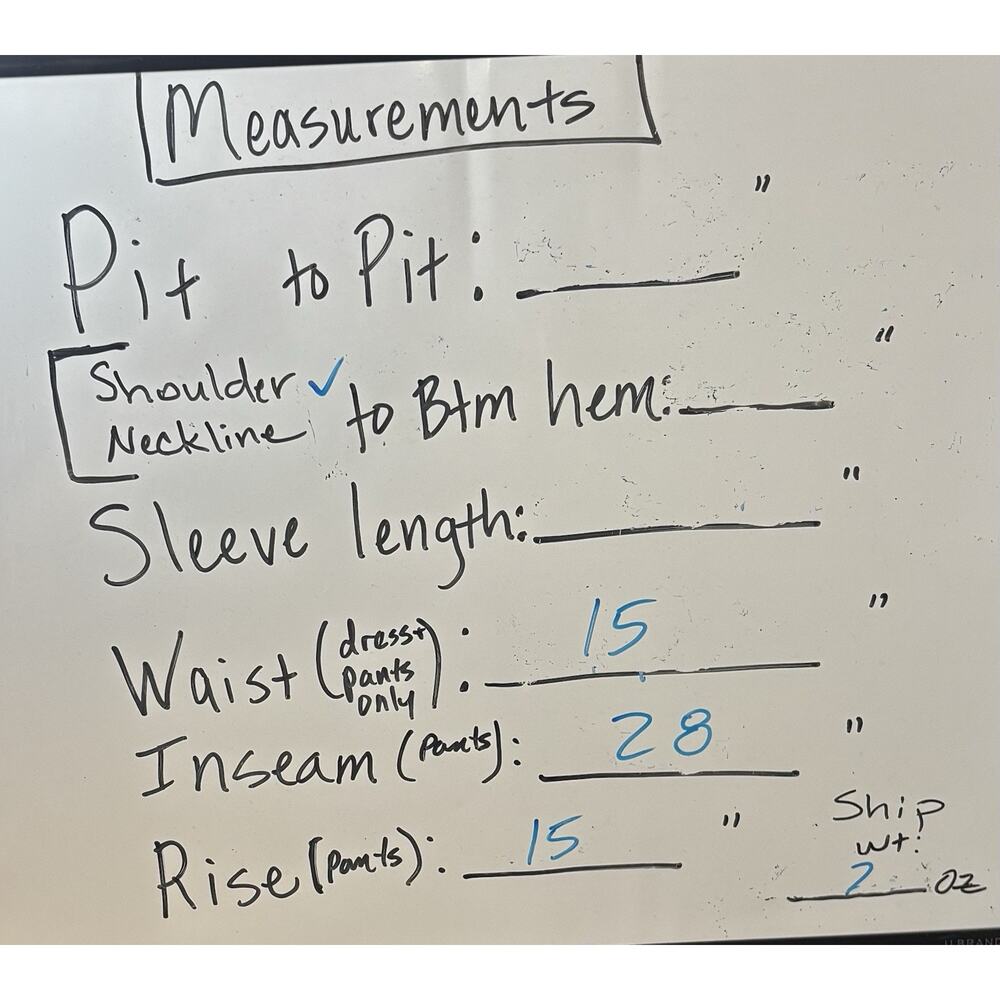 Measurements
Pit to Pit: "
Shoulder ✓
Neckline
to Btm hem: "
Sleeve length: "
Waist (dress+
pants
only): 15 "
Inseam (pants): 28 "
Rise (pants): 15 "
Ship
wt:
2 oz